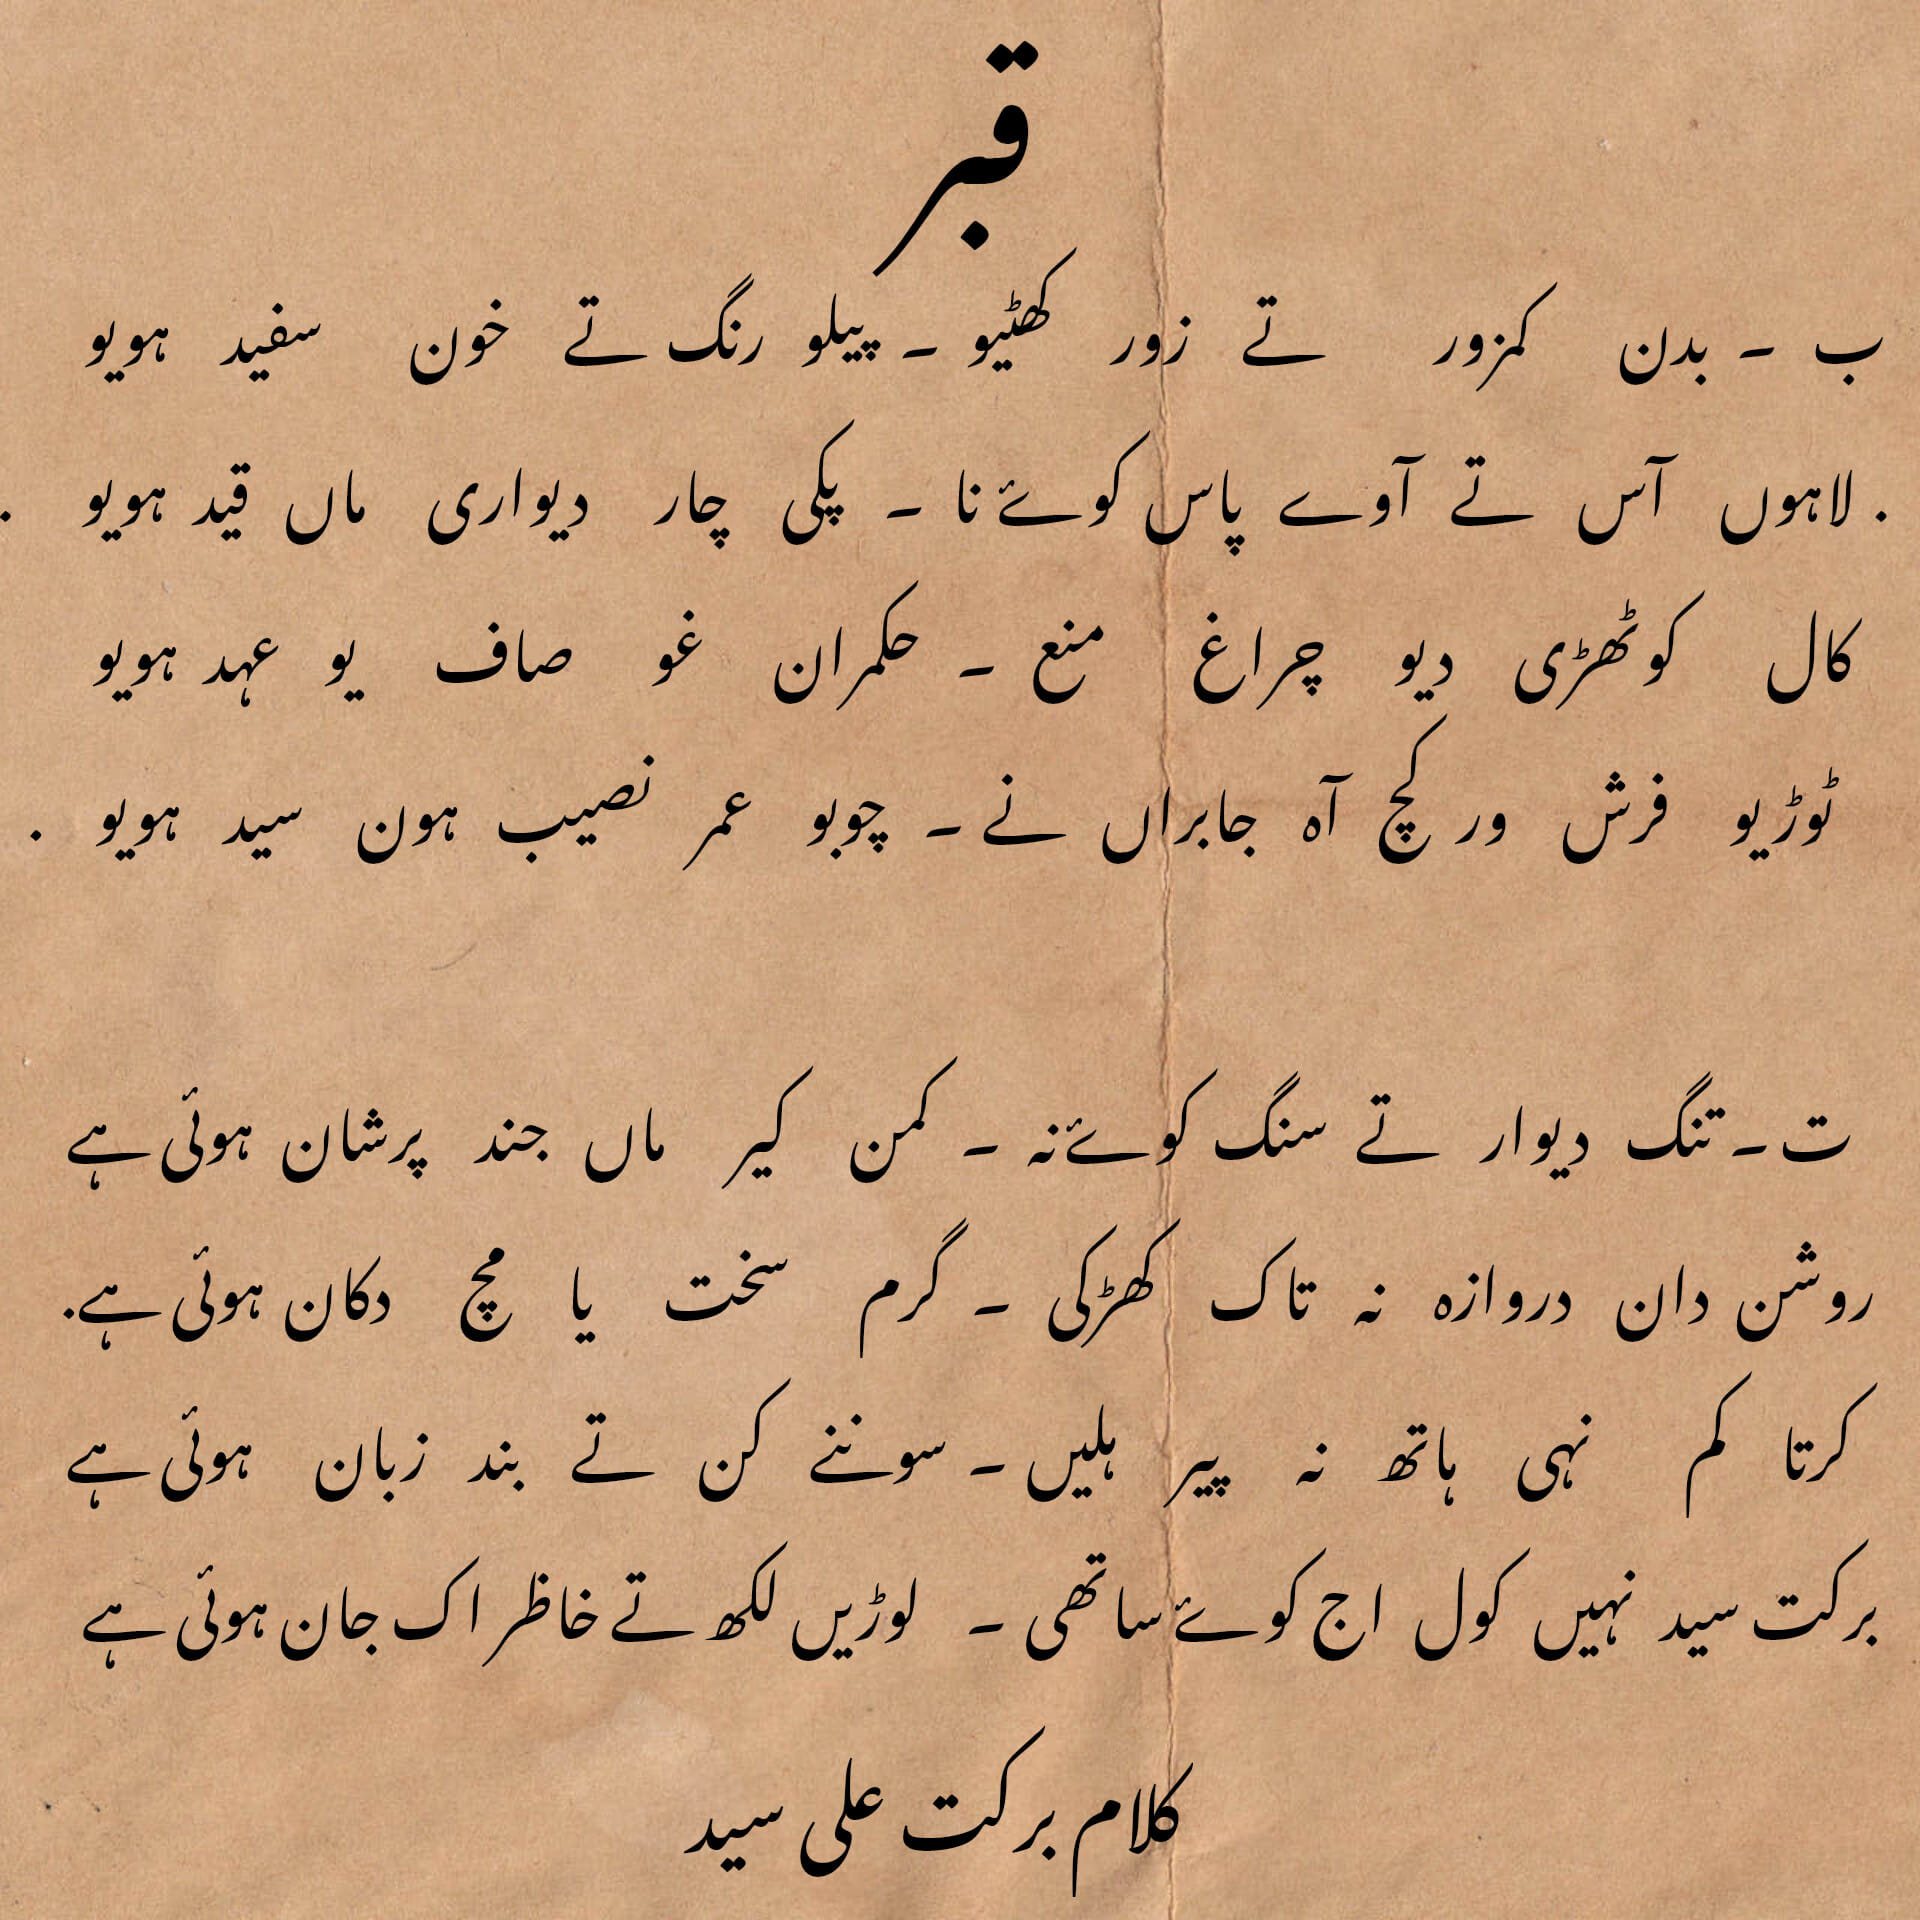 قبر
ب ۔ بدن کمزور تے زور کھٹیو ۔ پیلو رنگ تے خون سفید ہویو
. لاہوں آس تے آوے پاس کوۓ نا ۔ پکی چار دیواری ماں قید ہویو .
کال کوٹھڑی دیو چراغ منع ۔ حکمران غو صاف یو عہد ہویو
ٹوڑیو فرش ور کچ آہ جابراں نے ۔ چوبو عمر نصیب ہون سید ہویو .
ت ۔ تنگ دیوار تے سنگ کوۓ نہ ۔ کمن کیر ماں جند پرشان ہوئی ہے
روشن دان دروازہ نہ تاک کھڑکی ۔ گرم سخت یا مچ دکان ہوئی ہے.
کرتا کم نہی ہاتھ نہ پیر ہلیں ۔ سوننے کن تے بند زبان ہوئی ہے
برکت سید نہیں کول اج کوۓ ساتھی ۔ لوڑیں لکھ تے خاظر اک جان ہوئی ہے
کلام برکت علی سید